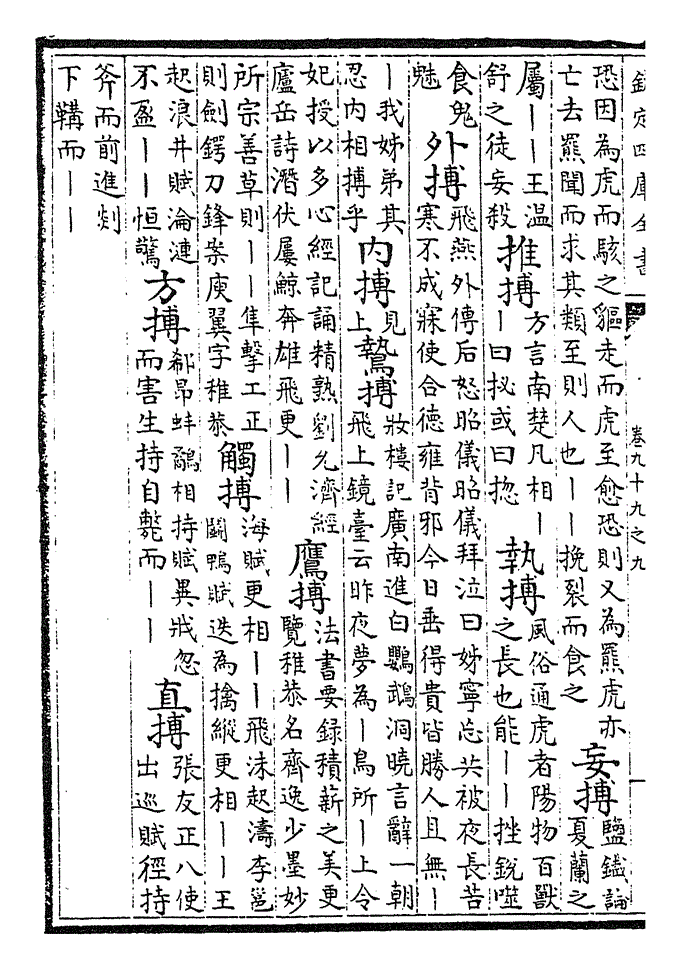 欽定四庫全書
卷九十九之九
恐因為虎而駭之軀走而虎至愈恐則又為羆虎亦
亡去羆聞而求其類至則人也丨丨挽裂而食之
妄搏
鹽鐵論
夏蘭之
屬丨丨王温
舒之徒妄殺
推搏
方言南楚凡相丨
丨曰㧙或曰揔
執搏
風俗通虎者陽物百獸
之長也能丨丨挫銳噬
食鬼
魅
外搏
飛燕外傳后怒昭儀昭儀拜泣曰姊寧忘共被夜長苦
寒不成寐使合德雍背邪今日垂得貴皆勝人且無丨
丨我姊弟其
忍内相搏乎
内搏
見
上
鷙搏
妝樓記廣南進白鸚鵡洞曉言辭一朝
飛上鏡臺云昨夜夢為丨鳥所丨上令
妃授以多心經記誦精熟劉允濟經
廬岳詩潛伏屢鯨奔雄飛更丨丨
鷹搏
法書要録積薪之美更
覽稚恭名齊逸少墨妙
所宗善草則丨丨隼擊工正
則劍鍔刀鋒案庾翼字稚恭
觸搏
海賦更相丨丨飛沫起濤李邕
鬭鴨賦迭為擒縱更相丨丨王
起浪井賦淪漣
不盈丨丨恒驚
方搏
郗昂蚌鷸相持賦異戕忽
而害生持自斃而丨丨
直搏
張友正八使
出巡賦徑持
斧而前進剡
下韝而丨丨